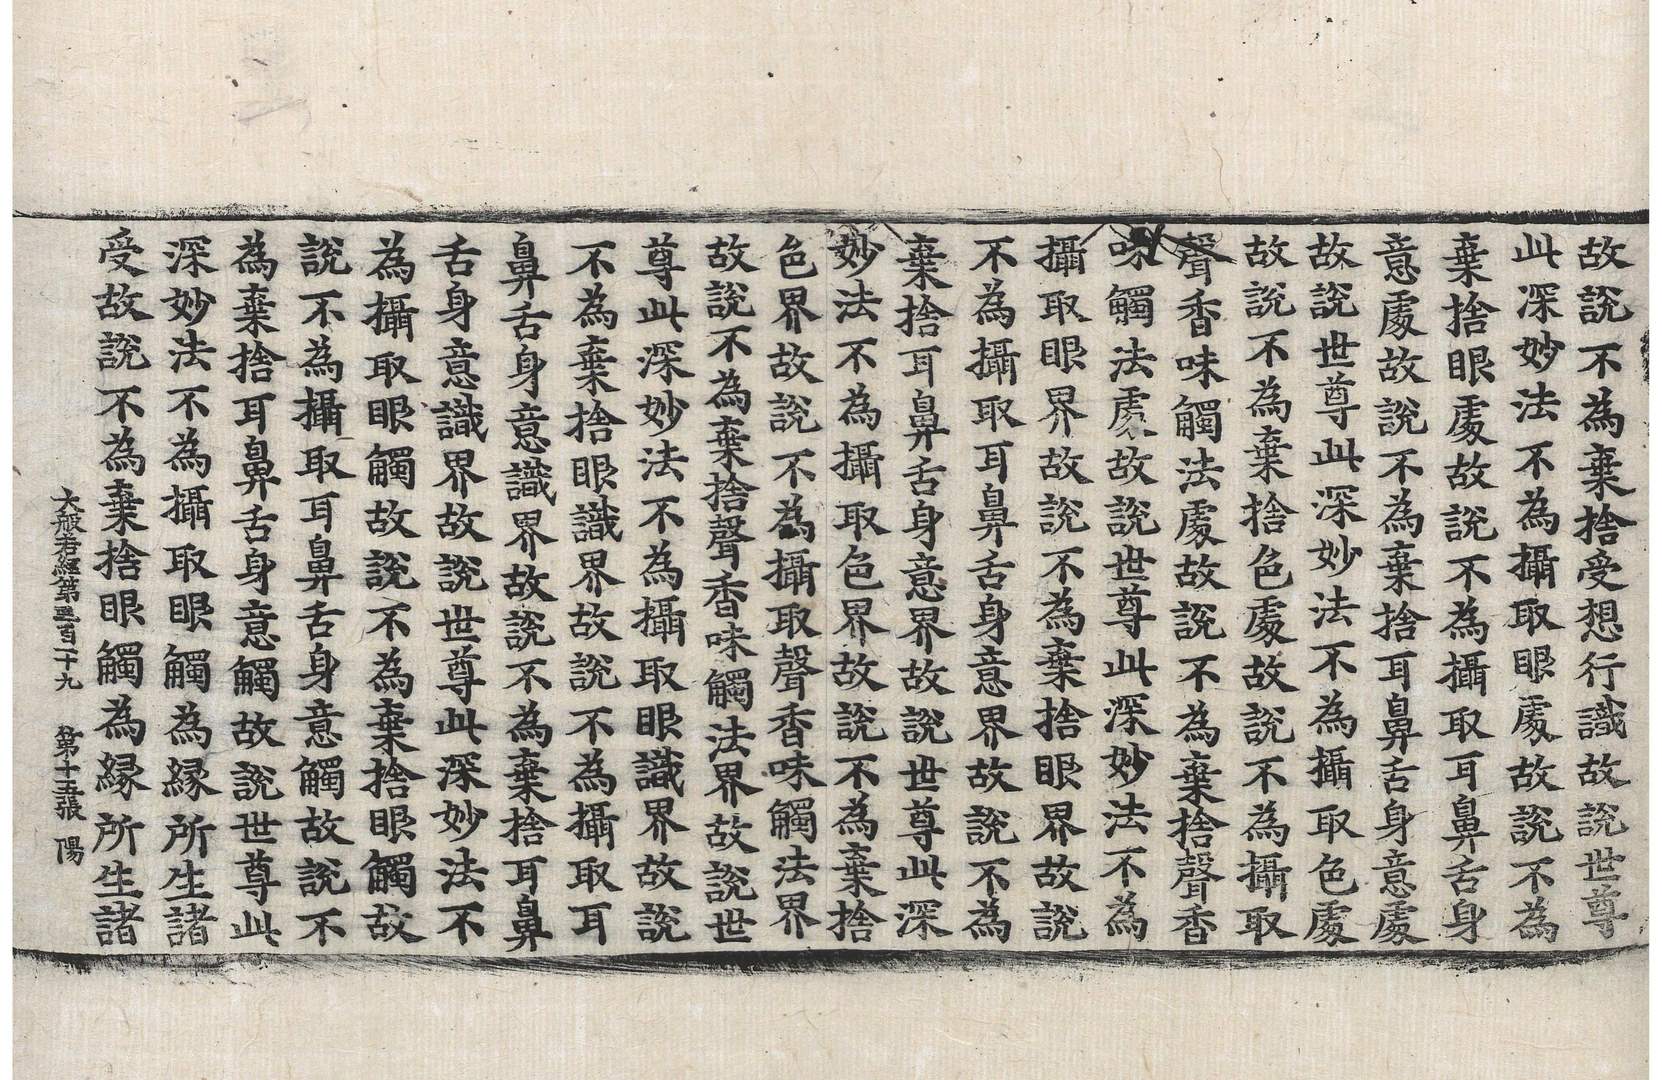 故說不為棄捨受想行識故說世尊
此深妙法不為攝取眼處故說不為
棄捨眼處故說不為攝取耳鼻舌身
意處故說不為棄捨耳鼻舌身意處
故說世尊此深妙法不為攝取色處
故說不為棄捨色處故說不為攝取
聲香味觸法處故說不為棄捨聲香
味觸法處故說世尊此深妙法不為
攝取眼界故說不為棄捨眼界故說
不為攝取耳鼻舌身意界故說不為
棄捨耳鼻舌身意界故說世尊此深
妙法不為攝取色界故說不為棄捨
色界故說不為攝取聲香味觸法界
故說不為棄捨聲香味觸法界故說世
尊此深妙法不為攝取眼識界故說
不為棄捨眼識界故說不為攝取耳
鼻舌身意識界故說不為棄捨耳鼻
舌身意識界故說世尊此深妙法不
為攝取眼觸故說不為棄捨眼觸故
說不為攝取耳鼻舌身意觸故說不
為棄捨耳鼻舌身意觸故說世尊此
深妙法不為攝取眼觸為緣所生諸
受故說不為棄捨眼觸為緣所生諸
大般若經第三百一十九 第十五張 陽